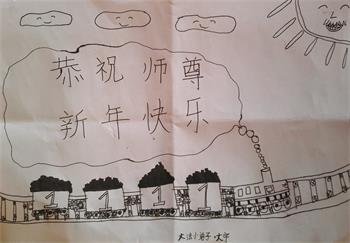 恭祝师尊
新年快乐
1 1 1 1
大法小弟子